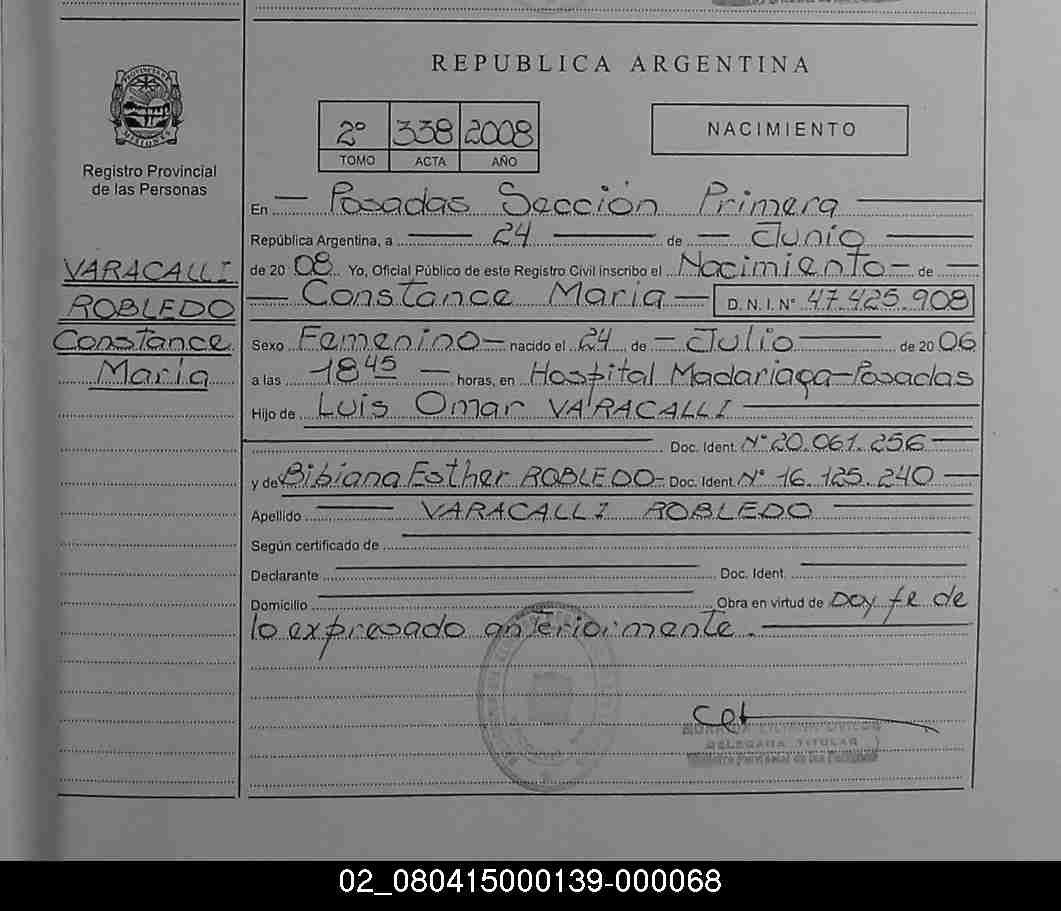 REPUBLICA ARGENTINA
PROVINCIA DE MISIONES
Registro Provincial
de las Personas
2° 338 2008
TOMO ACTA AÑO
NACIMIENTO
En Posadas Sección Primera
República Argentina, a 24 de Junio
de 2008 Yo, Oficial Público de este Registro Civil inscribo el Nacimiento de
Constance Maria D.N.I. N° 47.425.908
Sexo Femenino nacido el 24 de Julio de 2006
a las 18 45 horas, en Hospital Madariaga-Posadas
Hijo de Luis Omar VARACALLI
Doc. Ident. N° 20.061.256
y de Bibiana Esther ROBLEDO- Doc. Ident. N° 16.125.240
Apellido VARACALLI ROBLEDO
Según certificado de
Declarante Doc. Ident.
Domicilio Obra en virtud de Doy fe de
lo expresado anteriormente.
VARACALLI
ROBLEDO
Constance
Maria
DELEGADA TITULAR
Registro Provincial de las Personas
02_080415000139-000068